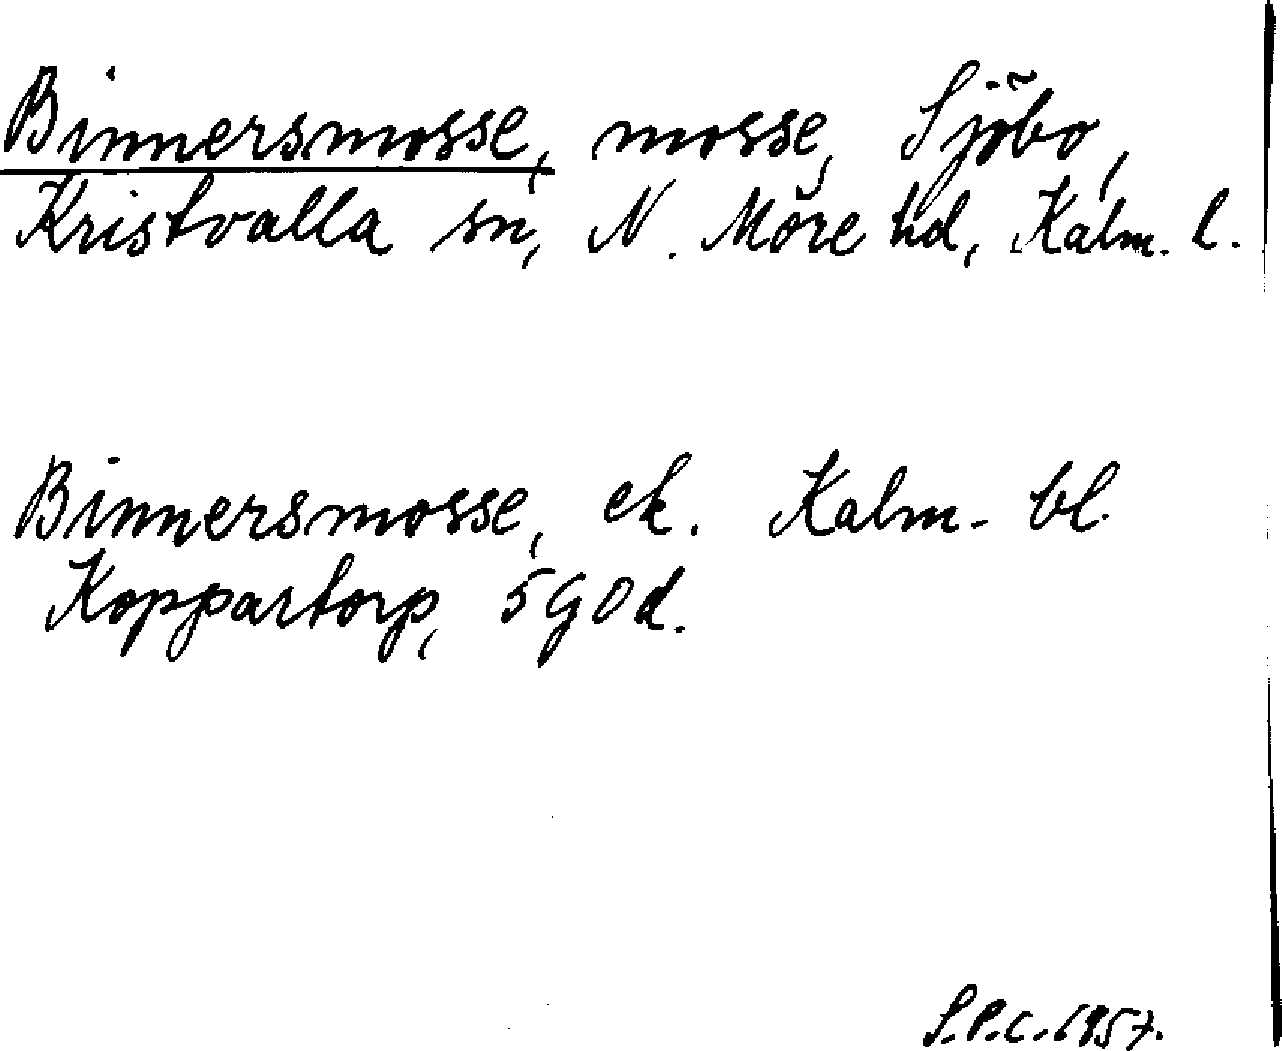 Binnersmosse, mosse, Sjöbo,
Kristvalla sn, N. Möre hd, Kalm. l.
Binnersmosse, ek. Kalm. bl.
Koppartorp, 5 G O d.
S.P.C. 1957.